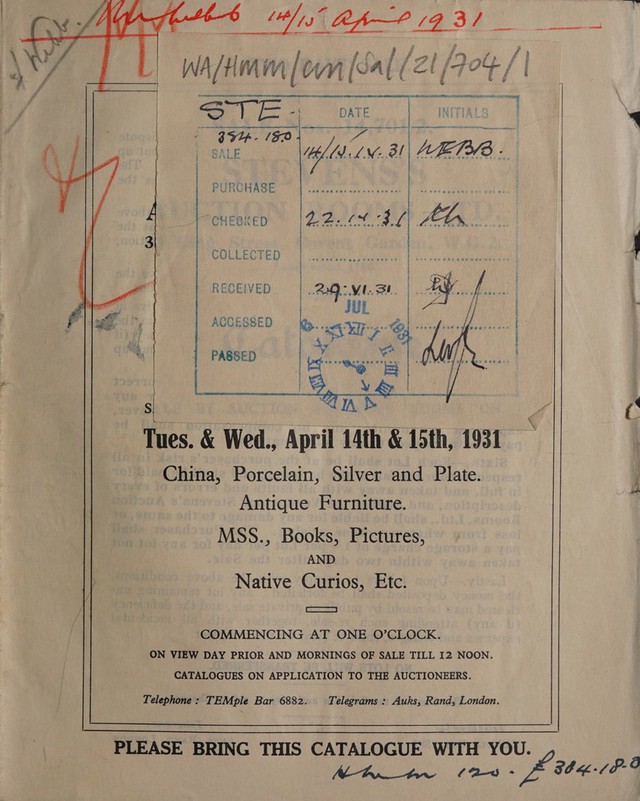 14/15 April 1931
Webb.
WA/Hmm/cm/Sal/21/704/1
STE- DATE INITIALS
384.18.0.
SALE 14/15.IV.31 WEBB.
PURCHASE
CHECKED 22.IV.31
COLLECTED
RECEIVED 29.VI.31
JUL
1931
ACCESSED
PASSED
A
3
S
Tues. & Wed., April 14th & 15th, 1931
China, Porcelain, Silver and Plate.
Antique Furniture.
MSS., Books, Pictures,
AND
Native Curios, Etc.
COMMENCING AT ONE O'CLOCK.
ON VIEW DAY PRIOR AND MORNINGS OF SALE TILL 12 NOON.
CATALOGUES ON APPLICATION TO THE AUCTIONEERS.
Telephone : TEMple Bar 6882. Telegrams : Auks, Rand, London.
PLEASE BRING THIS CATALOGUE WITH YOU.
120. £384.18.0